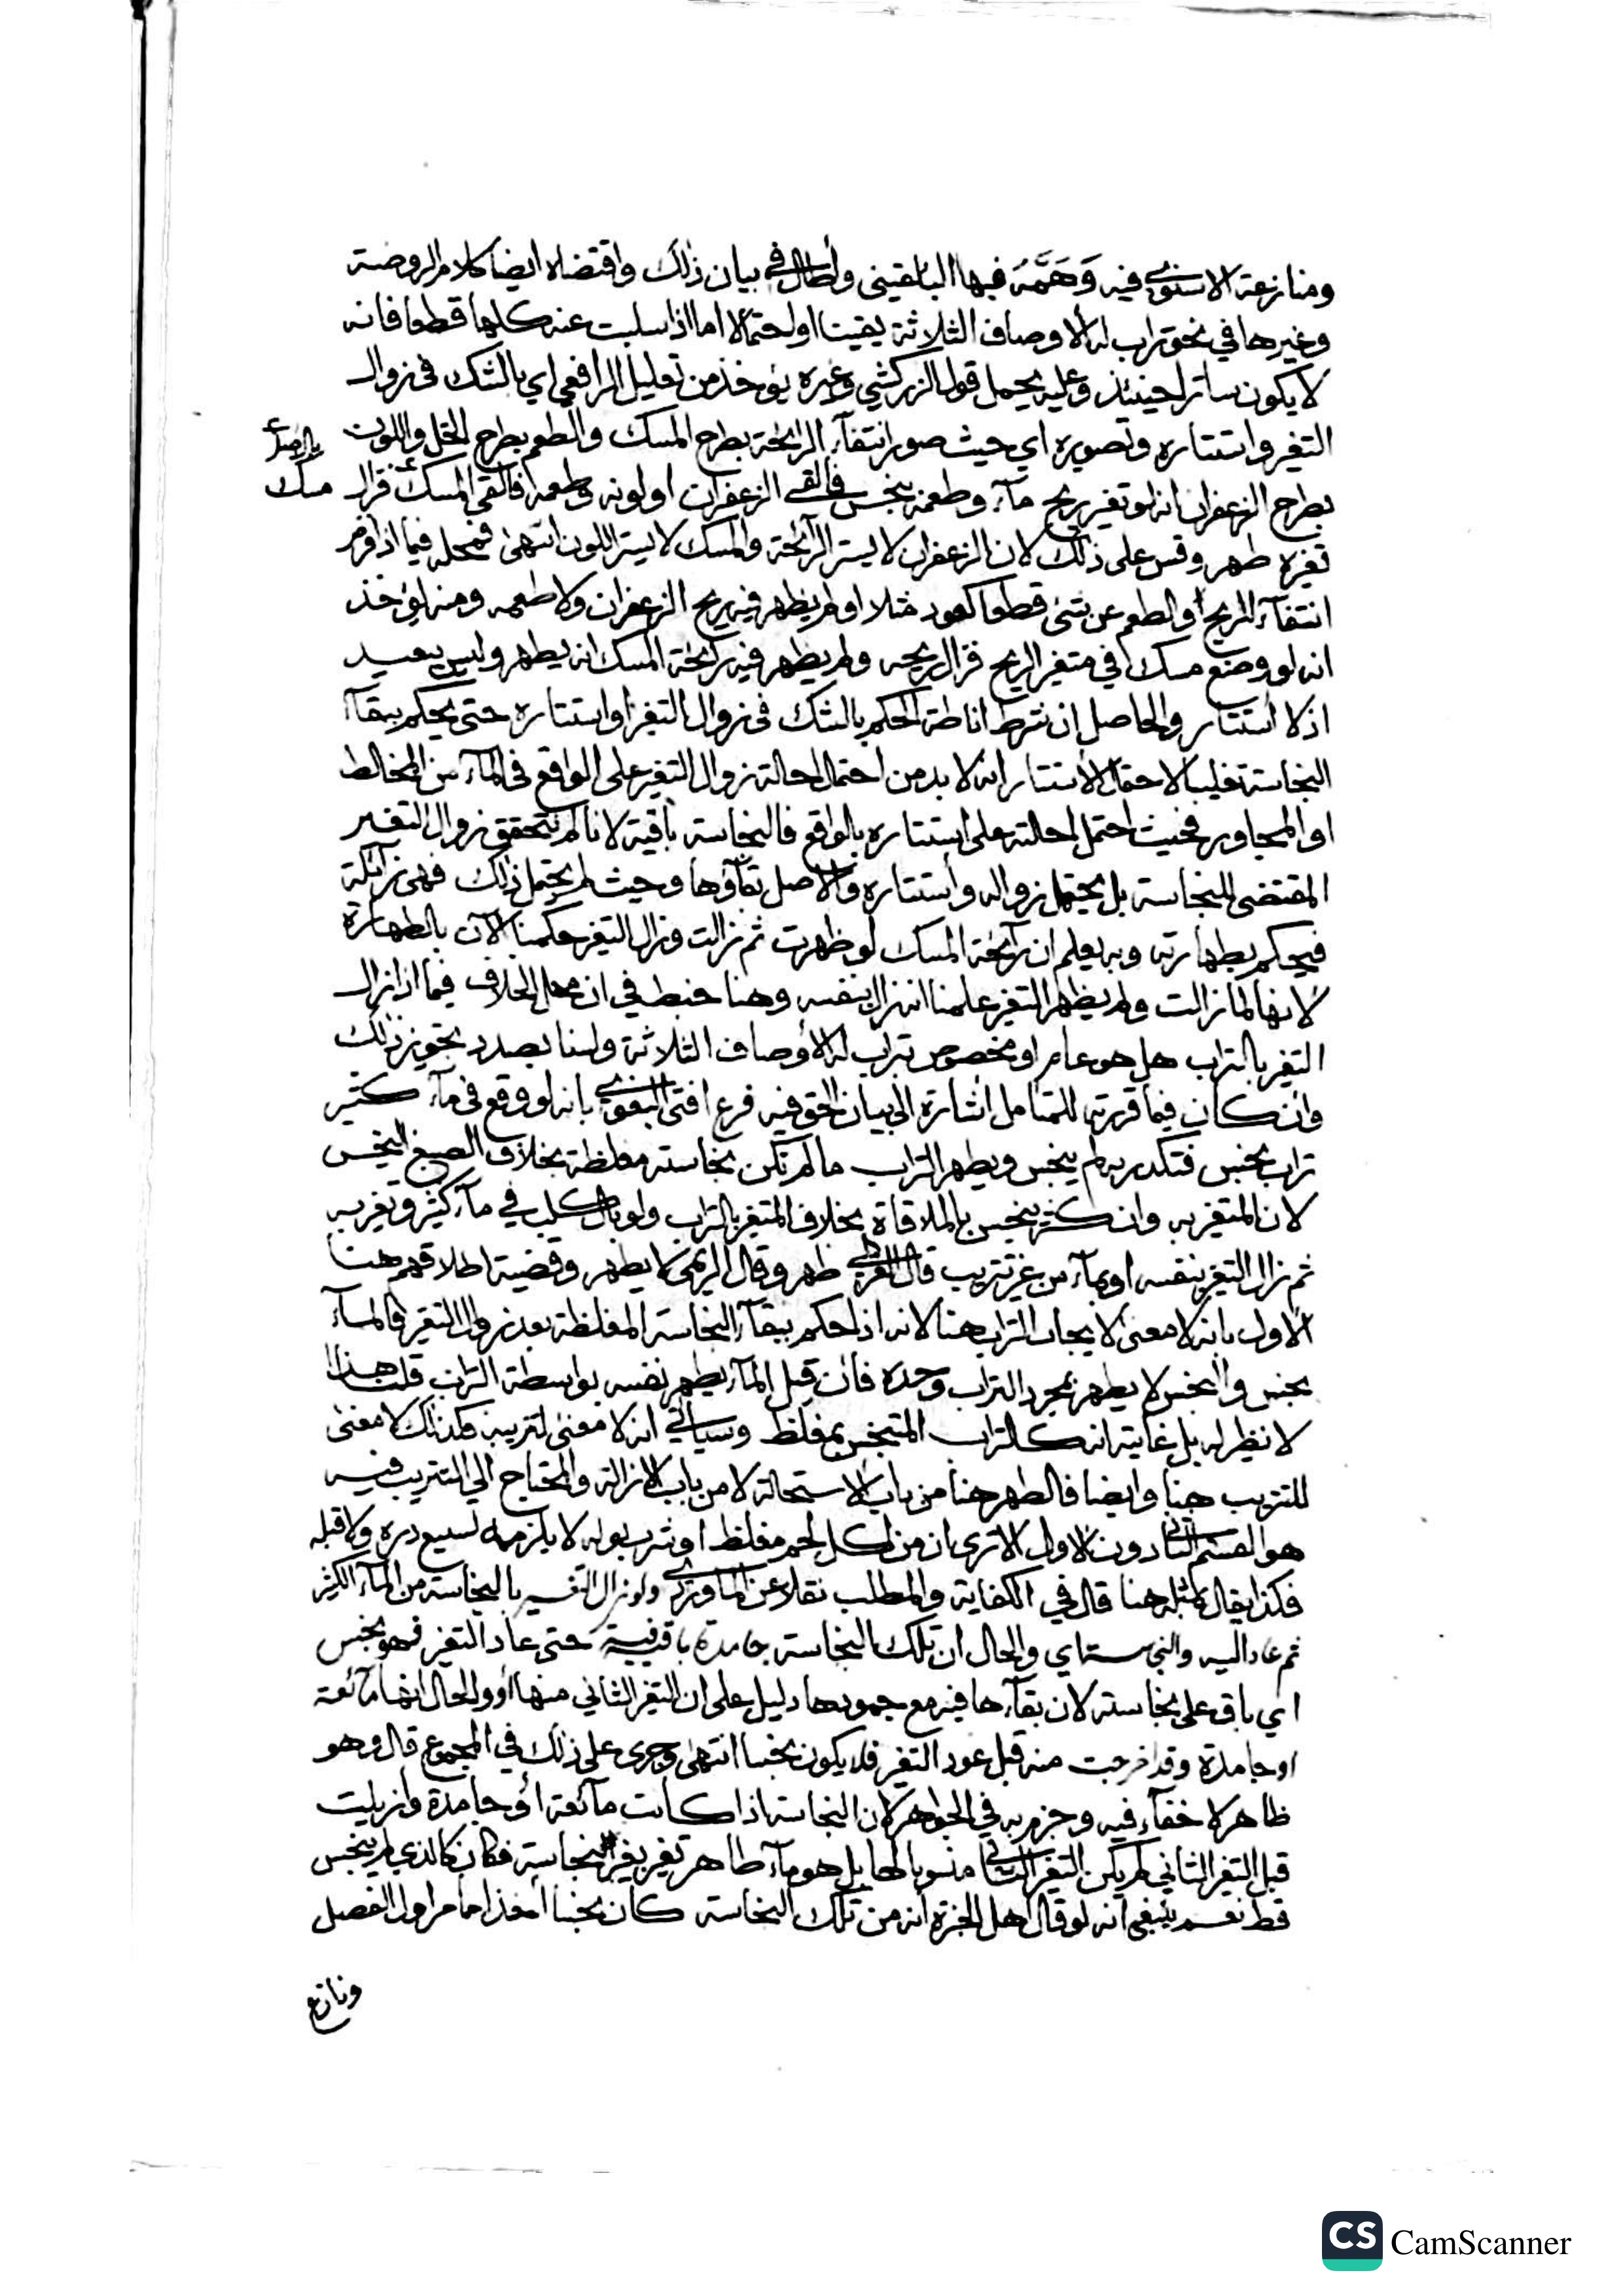 ومنازعة الاسنوي فيه وَهَّمَهُ فيها البلقيني واطال في بيان ذلك واقتضاه ايضا كلام الروضة
وغيرها في نحو تراب له الاوصاف الثلاثة يقينا او احتمالا اما اذا سلبت عنه كلها قطعا فانه
لا يكون ساترا حينئذ وعليه يحمل قول الزركشي وغيره يؤخذ من تعليل الرافعي اي بالشك في زوال
التغير واستتاره وتصويره اي حيث صور انتفاء الرائحة بطرح المسك والطعم بطرح الخل واللون
بطرح الزعفران انه لو تغير ريح ماء وطعمه بنجس فالقي الزعفران او لونه وطعمه فالقي المسك فزال
مسك
تغيره طهر وقس على ذلك لان الزعفران لا يستر الرائحة والمسك لا يستر اللون انتهى فمحله فيما اذا فرض
انتفاء الريح والطعم عن شئ قطعا كعود مثلا او لم يظهر فيه ريح الزعفران ولا طعمه ومنه يؤخذ
انه لو وضع مسك في متغير الريح فزال ريحه ولم يظهر فيه رائحة المسك انه يطهر وليس ببعيد
اذ لا استتار والحاصل ان شرط اناطة الحكم بالشك في زوال التغير او استتاره حتى يحكم ببقاء
النجاسة تغليبا لاحتمال الاستتار انه لا بد من احتمال احالة زوال التغير على الواقع في الماء من المخالط
او المجاور فحيث احتمل احالته على استتاره بالواقع فالنجاسة باقية لانا لم نتحقق زوال التغير
المقتضي للنجاسة بل يحتمل زواله واستتاره والاصل بقاؤها وحيث لم يحتمل ذلك فهي زائلة
فيحكم بطهارته وبه يعلم ان رائحة المسك لو ظهرت ثم زالت وزال التغير حكمنا الآن بالطهارة
لانها لما زالت ولم يظهر التغير علمنا انه زال بنفسه وهنا خبط في ان محل الخلاف فيما اذا زال
التغير بالتراب هل هو عام او مخصوص بتراب له الاوصاف الثلاثة ولسنا بصدد تحوير ذلك
وان كان فيما قررته للمتامل اشارة الى بيان الحق فيه فرع افتى البغوي بانه لو وقع في ماء كثير
تراب نجس فتكدر به لم ينجس ويطهر التراب ما لم تكن نجاسته مغلظة بخلاف الصبغ النجس
لان المتغير به وان كثر ينجس بالملاقاة بخلاف المتغير بالتراب ولو بال كلب في ماء كثير وتغير به
ثم زال التغير بنفسه او بماء من غير تتريب قال طهر وقال الريمي لا يطهر وقضية اطلاقهم هنا
الاول بانه لا معنى لايجاب التراب هنا لانه اذا حكم ببقاء النجاسة المغلظة بعد زوال التغير فالماء
نجس والنجس لا يطهر بمجرد التراب وحده فان قيل الماء يطهر نفسه بواسطة التراب قلت هذا
لا نظير له بل غايته انه كالتراب المتنجس بمغلظ وسياتي انه لا معنى لتتريبه فكذلك لا معنى
للتتريب هنا وايضا فالطهر هنا من باب الاستحالة لا من باب الازالة والمحتاج الى التتريب فيه
هو القسم الثاني دون الاول الا ترى ان من اكل لحم مغلظ او شرب بوله لا يلزمه تسبيع دبره ولا قبله
فكذا يقال بمثله هنا قال في الكفاية والمطلب نقلا عن الماوردي ولو زال التغير بالنجاسة من الماء الكثير
ثم عاد اليه والنجاسة اي والحال ان تلك النجاسة جامدة باقية فيه حتى عاد التغير فهو نجس
اي باق على نجاسته لان بقاءها فيه مع جمودها دليل على ان التغير الثاني منها او والحال انها مائعة
او جامدة وقد اخرجت منه قبل عود التغير فلا يكون نجسا انتهى وجرى على ذلك في المجموع قال وهو
ظاهر لا خفاء فيه وجزم به في الجواهر لان النجاسة اذا كانت مائعة او جامدة وازيلت
قبل التغير الثاني لم يكن التغير الثاني منسوبا لها بل هو ماء طاهر تغير بغير النجاسة فكان كالذي لم ينجس
قط نعم ينبغي انه لو قال اهل الخبرة انه من تلك النجاسة كان نجسا اخذا مما مر اول الفصل
ونازع
CS CamScanner